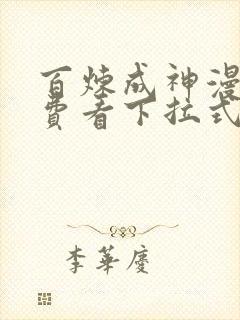 百炼成神漫
费看下拉式
李華慶